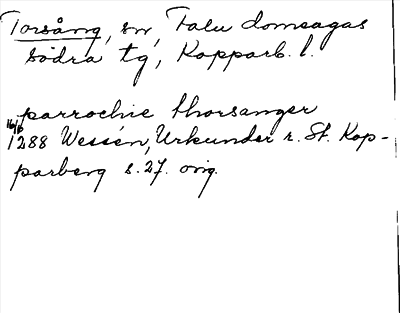 Torsång, sn, Falu domsagas
södra tg, Kopparb. l.
parrochie thorsanger
16/6
1288 Wessén, Urkunder r. St. Kop-
parberg s. 27. orig.